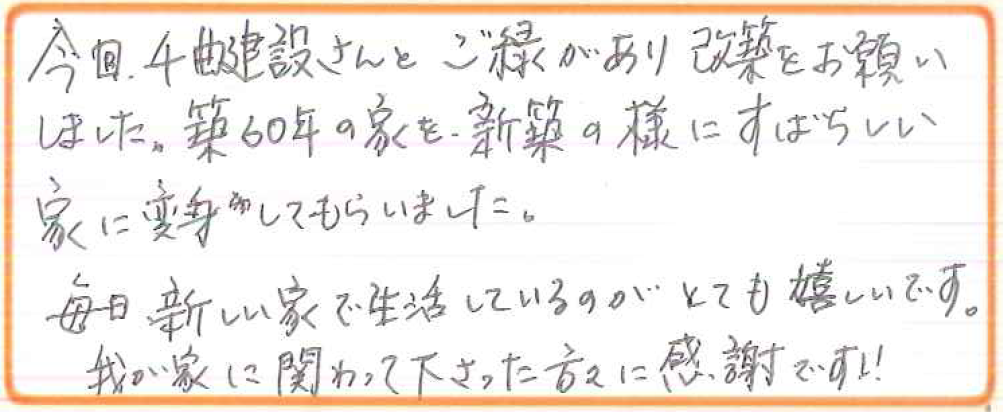 今回、千曲建設さんと ご縁があり 改築をお願い
しました。築60年の家を、新築の様にすばらしい
家に変身してもらいました。
毎日 新しい家で生活しているのが とても嬉しいです。
我が家に関わって下さった方々に感謝です!!